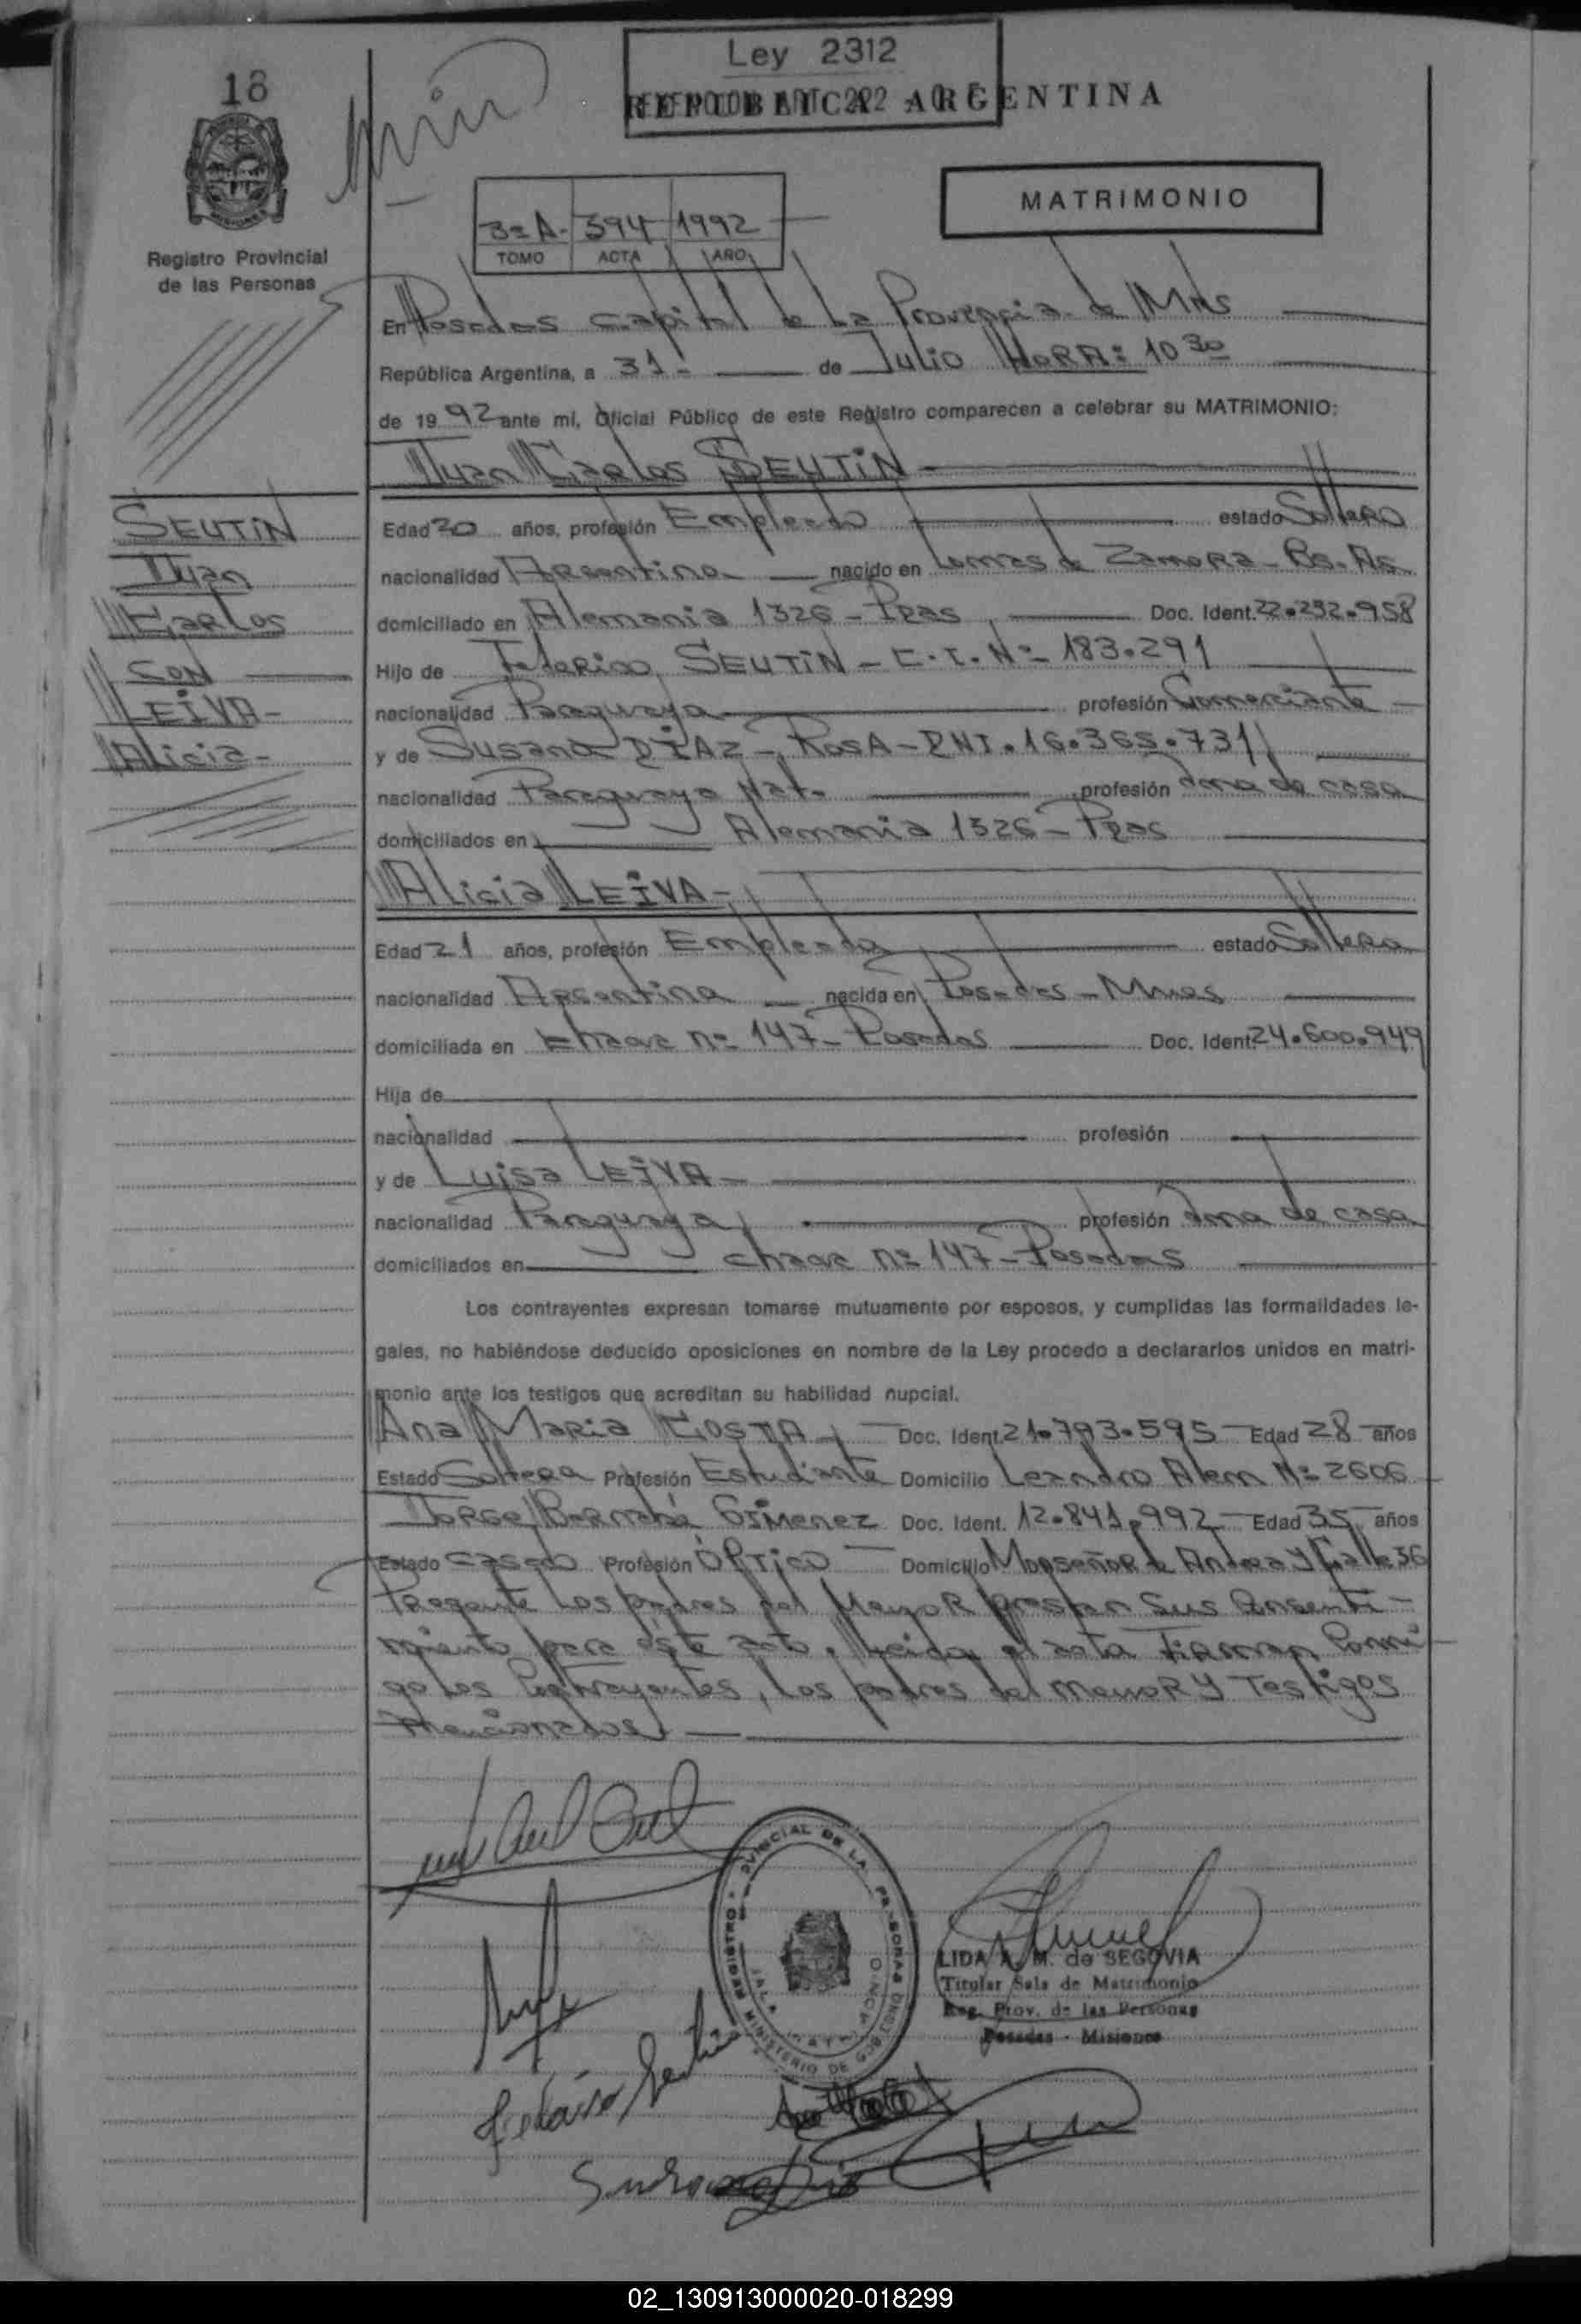 18
Ley 2312
REPUBLICA ARGENTINA
MATRIMONIO
3ª A- 394 1992
TOMO ACTA AÑO
Registro Provincial
de las Personas
En Posadas capital de La Provincia de Mns
República Argentina, a 31- de Julio HORA: 10 30
de 1992 ante mí, Oficial Público de este Registro comparecen a celebrar su MATRIMONIO:
Juan Carlos SEUTIN
SEUTIN
Juan
Carlos
CON
LEIVA-
Alicia-
Edad 20 años, profesión Empleado estado Soltero
nacionalidad Argentina nacido en Lomas de Zamora - Bs. As
domiciliado en Alemania 1326 - Pdas Doc. Ident. 22.292.958
Hijo de Federico SEUTIN - C.I. Nº 183.291
nacionalidad Paraguaya profesión Comerciante
y de Susana DÍAZ - RosA - DNI. 16.365.731
nacionalidad Paraguaya Nat. profesión Ama de casa
domiciliados en Alemania 1326 - Pdas
Alicia LEIVA-
Edad 21 años, profesión Empleada estado Soltera
nacionalidad Argentina nacida en Posadas - Mnes
domiciliada en nº 147 - Posadas Doc. Ident. 24.600.949
Hija de
nacionalidad profesión
y de Luisa LEIVA -
nacionalidad Paraguaya profesión Ama de casa
domiciliados en nº 147 - Posadas
Los contrayentes expresan tomarse mutuamente por esposos, y cumplidas las formalidades le-
gales, no habiéndose deducido oposiciones en nombre de la Ley procedo a declararlos unidos en matri-
monio ante los testigos que acreditan su habilidad nupcial.
Ana Maria COSTA Doc. Ident. 21.793.595 Edad 28 años
Estado Soltera Profesión Estudiante Domicilio Leandro Alem Nº 2606
Jorge Bernabé Gimenez Doc. Ident. 12.841.992 Edad 35 años
Estado Casado Profesión ÓPTICO Domicilio Monseñor de Andrea y Calle 36
Presente Los padres del Menor prestan Sus Consenti-
miento para éste acto. Leida el acta Firman Conmi-
go los Contrayentes, los padres del menor y Testigos
Mencionados
LIDA A. M. de SEGOVIA
Titular Sala de Matrimonio
Reg. Prov. de las Personas
Posadas - Misiones
Federico Seutin
02_130913000020-018299